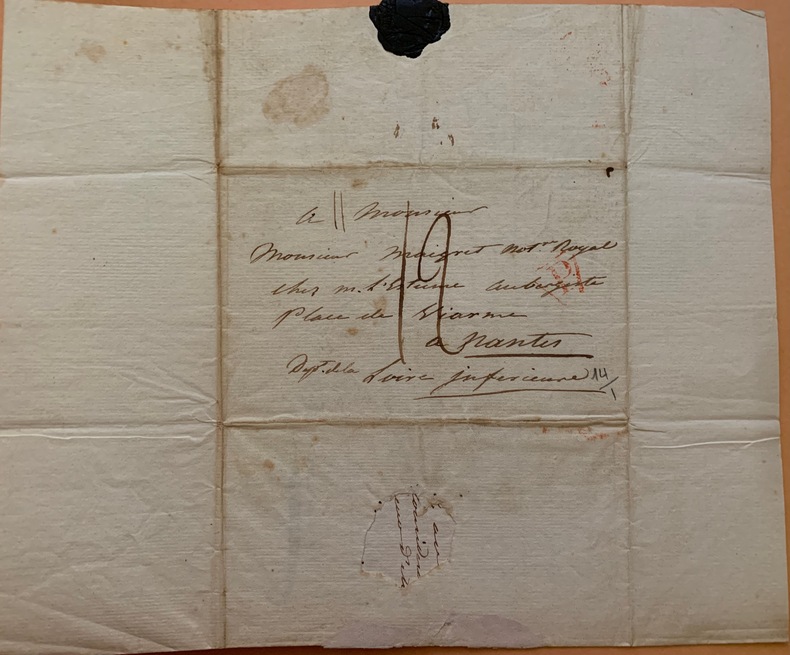 a Monsieur
Monsieur Maigret not.re Royal
chez m. l'Estume aubergiste
Place de Viarme
a Nantes
Dept. de la Loire inferieure 14
12